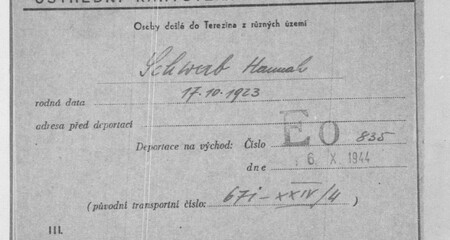 ÚSTŘEDNÍ KARTOTÉKA
Osoby došlé do Terezína z různých území
Schwerb Hannah
rodná data 17.10.1923
adresa před deportací
Deportace na východ: Číslo EO 835
dne 6. X. 1944
(původní transportní číslo: 67i-XXIV/4)
III.